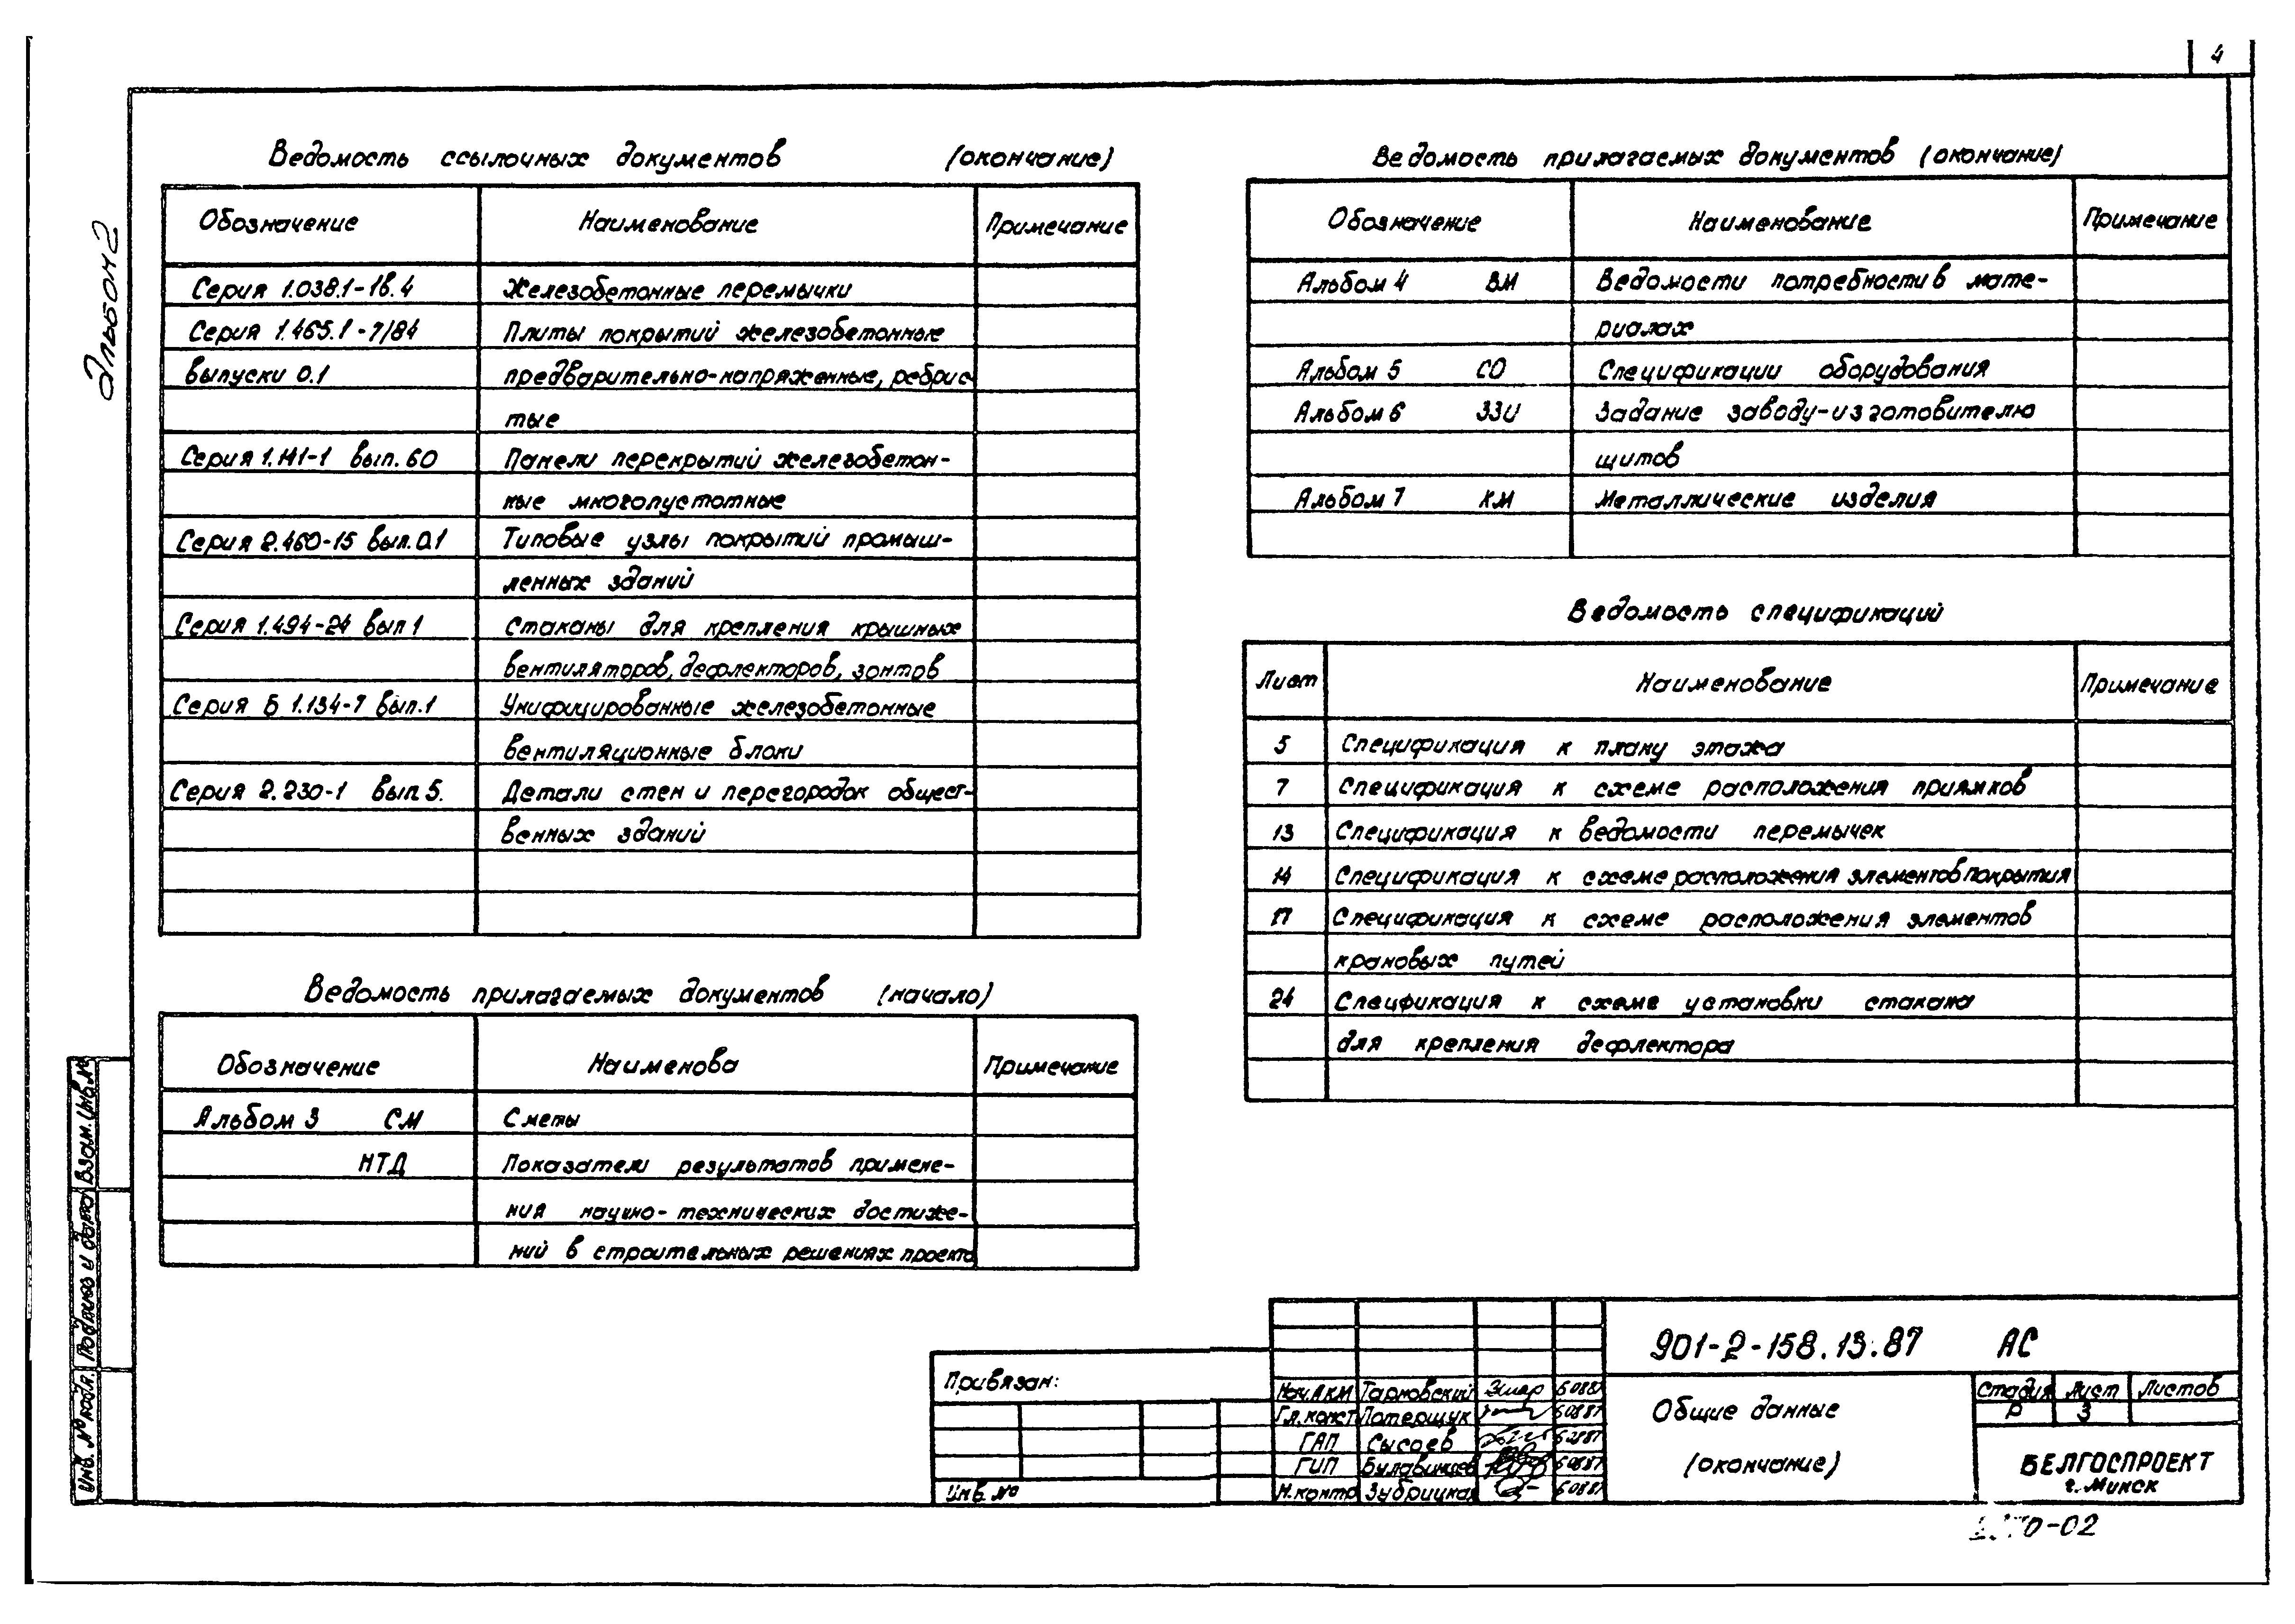 4
Альбом 2
Ведомость ссылочных документов (окончание)
Обозначение Наименование Примечание
Серия 1.038.1-1 в.4 Железобетонные перемычки
Серия 1.465.1-7/84 Плиты покрытий железобетонные
выпуски 0.1 предварительно-напряженные, ребрис
тые
Серия 1.141-1 вып.60 Панели перекрытий железобетон-
ные многопустотные
Серия 2.460-15 вып.0.1 Типовые узлы покрытий промыш-
ленных зданий
Серия 1.494-24 вып 1 Стаканы для крепления крышных
вентиляторов, дефлекторов, зонтов
Серия Б 1.134-7 вып.1 Унифицированные железобетонные
вентиляционные блоки
Серия 2.230-1 вып 5. Детали стен и перегородок общест-
венных зданий
Ведомость прилагаемых документов (начало)
Обозначение Наименова Примечание
Альбом 3 СМ Сметы
НТД Показатели результатов примене-
ния научно-технических достиже-
ний в строительных решениях проекта
Ведомость прилагаемых документов (окончание)
Обозначение Наименование Примечание
Альбом 4 ВМ Ведомости потребности в мате-
риалах
Альбом 5 СО Спецификации оборудования
Альбом 6 ЗЗИ Задание заводу-изготовителю
щитов
Альбом 7 КМ Металлические изделия
Ведомость спецификаций
Лист Наименование Примечание
5 Спецификация к плану этажа
7 Спецификация к схеме расположения приямков
13 Спецификация к ведомости перемычек
14 Спецификация к схеме расположения элементов покрытия
17 Спецификация к схеме расположения элементов
крановых путей
24 Спецификация к схеме установки стакана
для крепления дефлектора
Инв. № подл. Подпись и дата Взам. инв. №
Привязан:
Инв. №
Нач.АКМ Тарновский 60887
Гл.конст Потерщук 60887
ГАП Сысоев
ГИП Булавинцев 60887
Н.контр Зубрицкая 60887
901-2-158.13.87 АС
Общие данные
(окончание)
Стадия Лист Листов
Р 3
БЕЛГОСПРОЕКТ
г. Минск